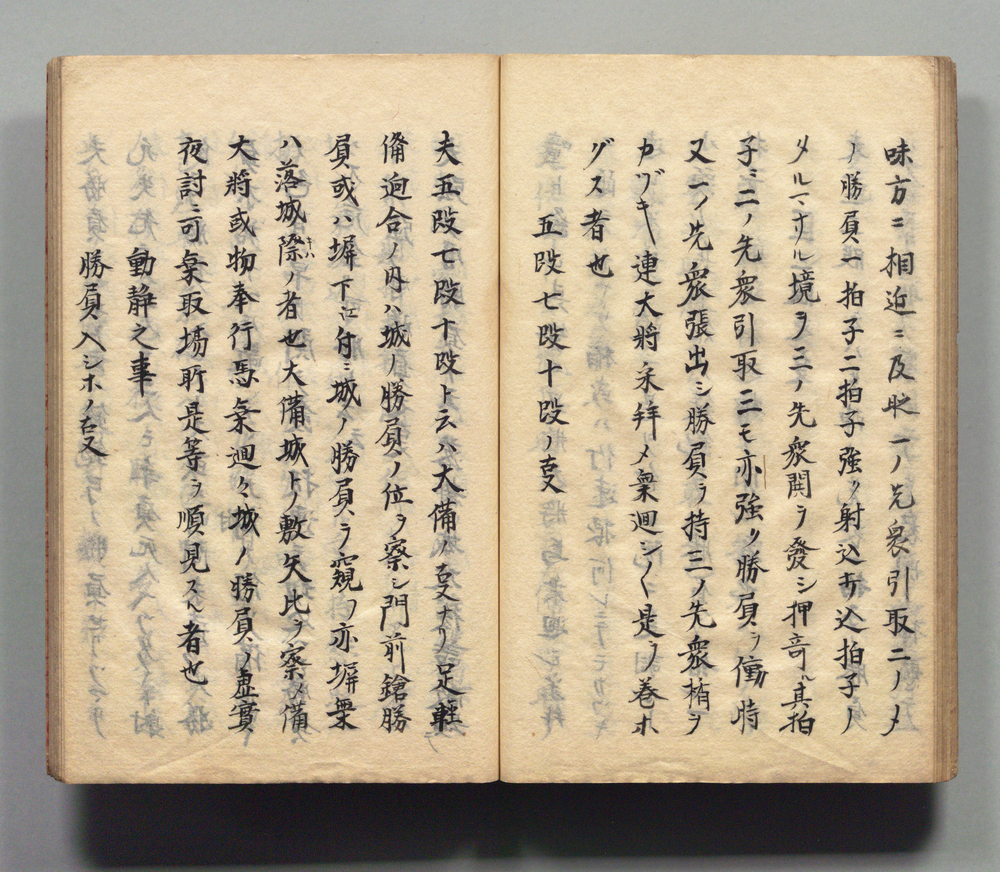 味方ニ相近ニ及时一ノ先衆引取二ノメ
ノ勝負一拍子二拍子強ク射込打込拍子ノ
メル境ヲ三ノ先衆閧ヲ發シ押竒ル真拍
子ニ二ノ先衆引取三モ亦強ク勝負ヲ働時
又一ノ先衆張出シ勝負ヲ持三ノ先衆楯ヲ
カヅキ連大將采拜〆乗廻シ〱是ヲ巻ホ
グス者也
五段七段十段ノ叓
夫五段七段十段ト云ハ大備ノ叓ナリ足軽
備迫合ノ内ハ城ノ勝負ノ位ヲ察シ門前鎗勝
負或ハ塀下江付ニ城ノ勝負ヲ窺フ亦塀乗
ハ落城際キハノ者也大備城トノ敷矢比ヲ察〆備
大將或物奉行馬乗廻々城ノ勝負ノ虚實
夜討ニ可乗取場所是等ヲ順見スル者也
動静之事
勝負入シホノ叓